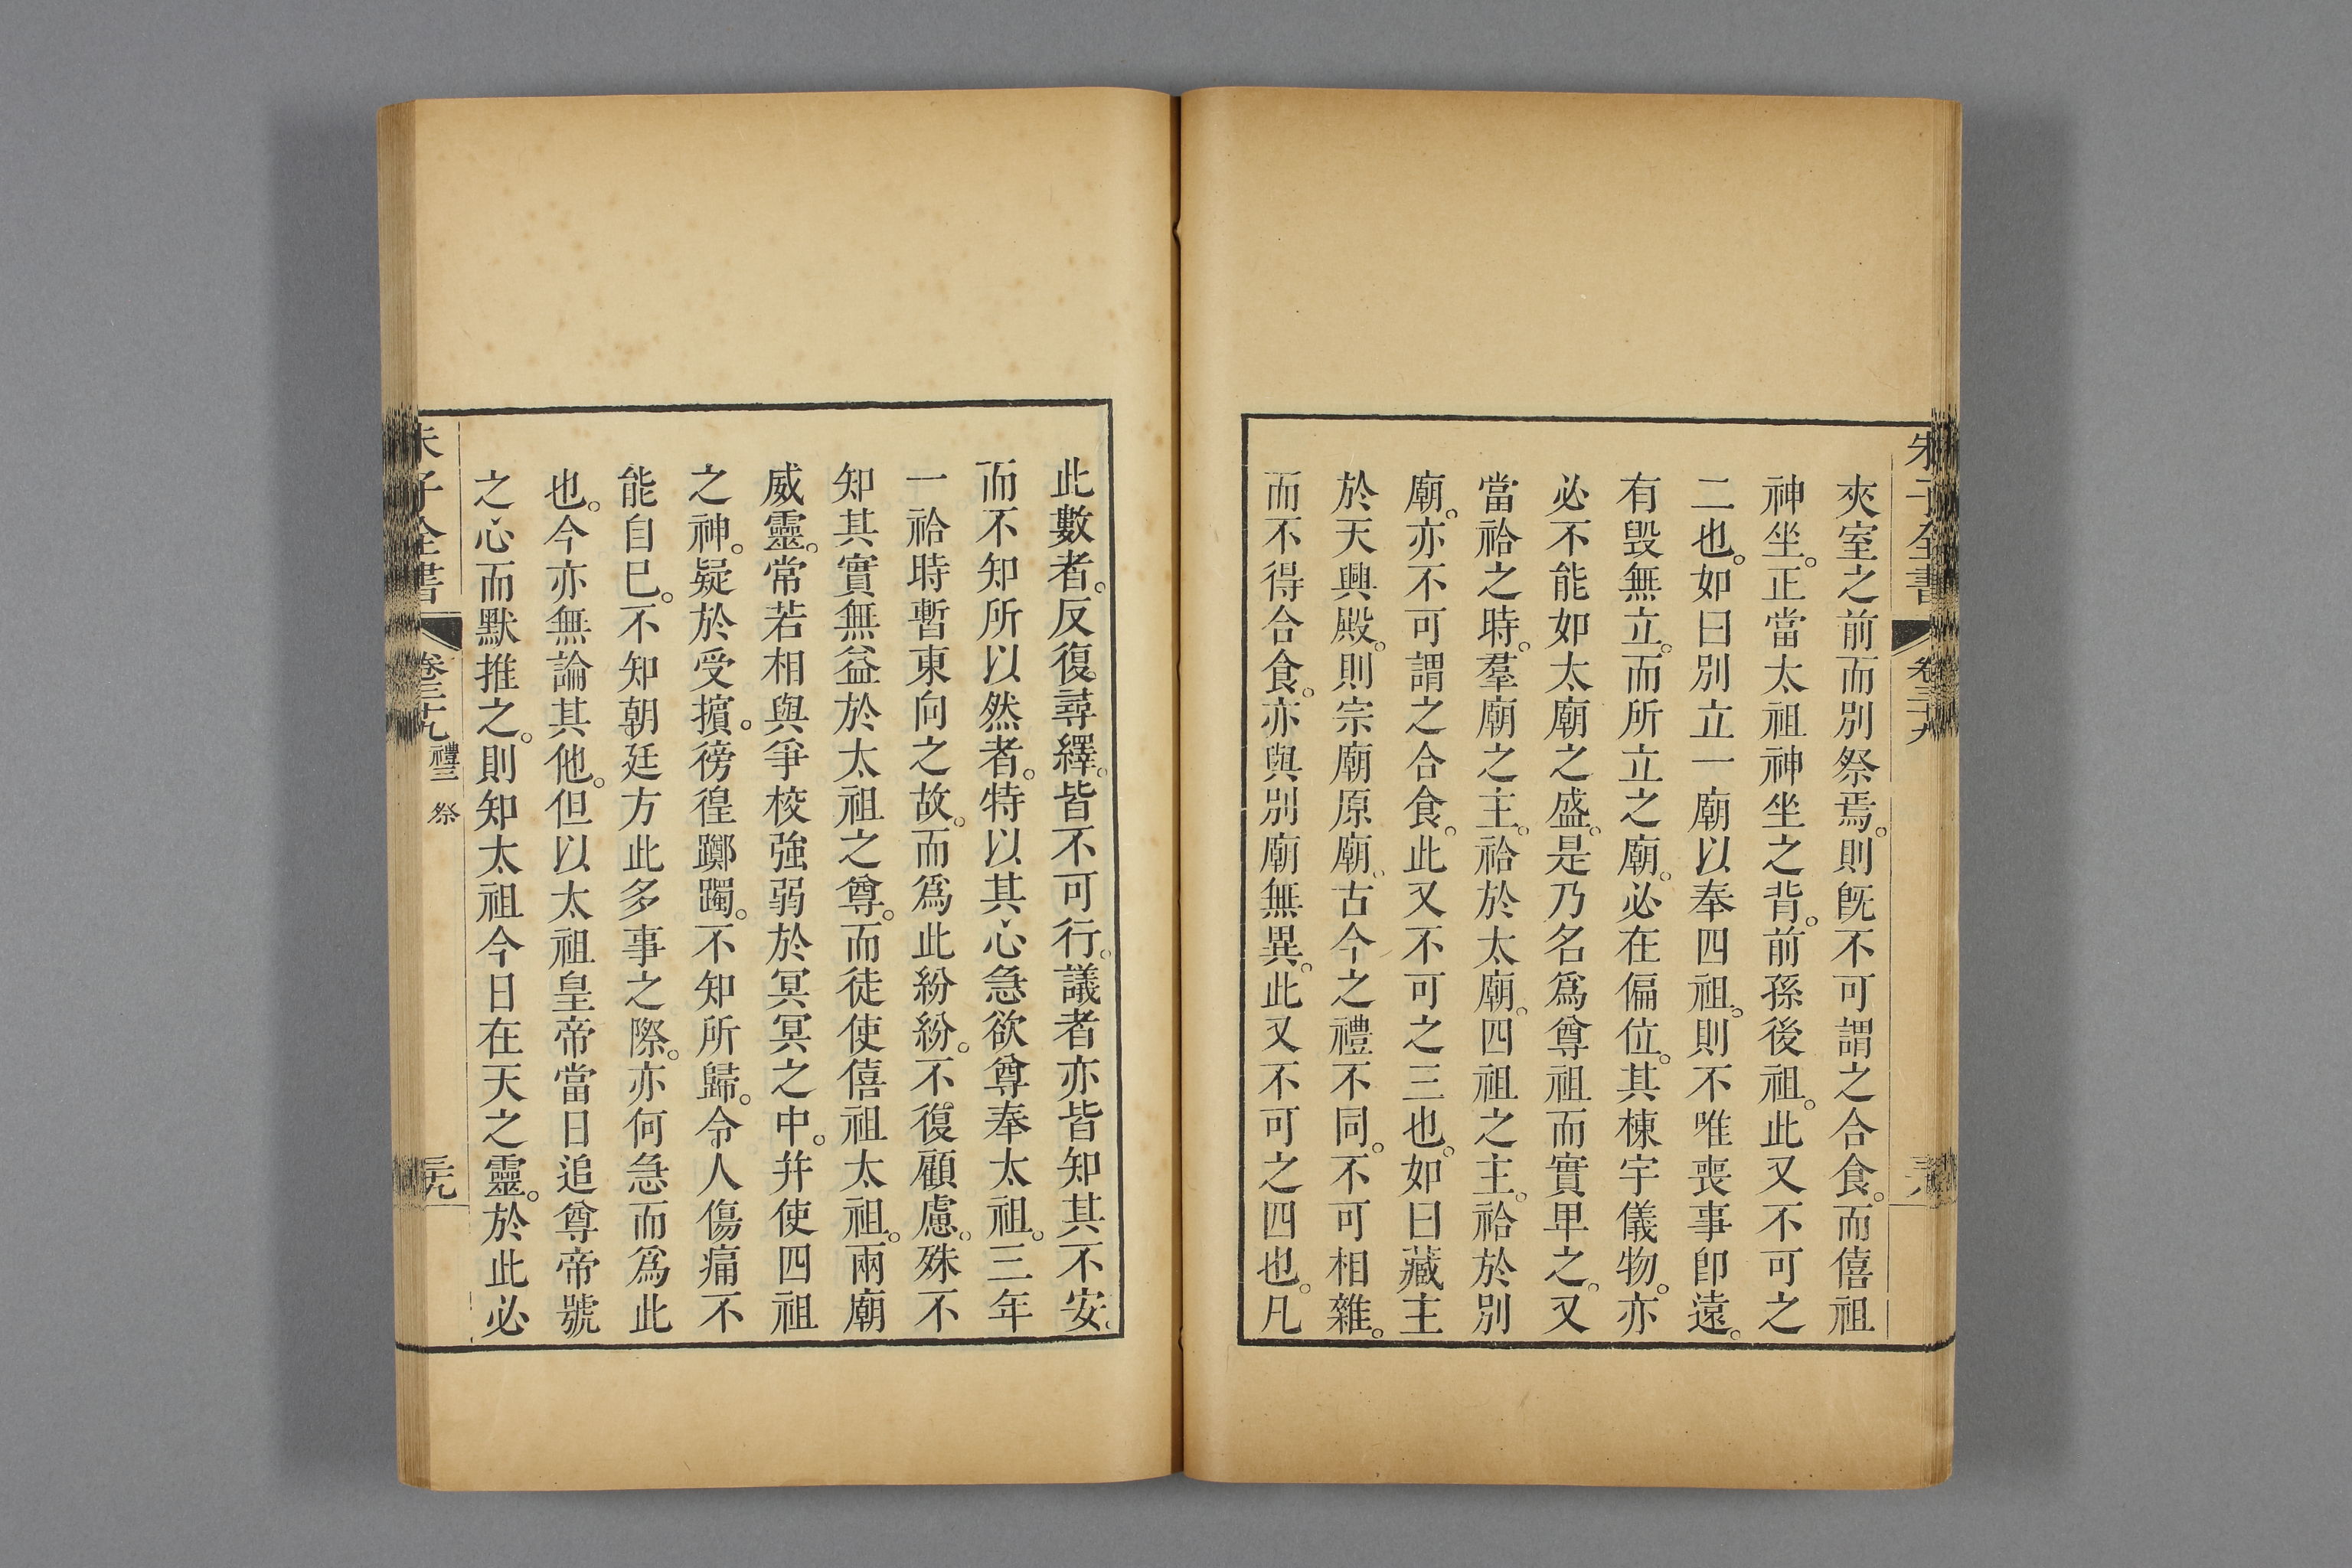 夾室之前而別祭焉。則旣不可謂之合食。而僖祖
神坐。正當太祖神坐之背。前孫後祖。此又不可之
二也。如曰別立一廟以奉四祖。則不唯喪事卽遠。
有毀無立。而所立之廟。必在偏位。其棟宇儀物。亦
必不能如太廟之盛。是乃名爲尊祖而實卑之。又
當祫之時。羣廟之主。祫於太廟。四祖之主。祫於別
廟。亦不可謂之合食。此又不可之三也。如曰藏主
於天興殿。則宗廟原廟。古今之禮不同。不可相雜。
而不得合食。亦與別廟無異。此又不可之四也。凡
此數者。反復尋繹。皆不可行。議者亦皆知其不安。
而不知所以然者。特以其心急欲尊奉太祖。三年
一祫時暫東向之故。而爲此紛紛。不復顧慮。殊不
知其實無益於太祖之尊。而徒使僖祖太祖。兩廟
威靈。常若相與爭校強弱於冥冥之中。幷使四祖
之神。疑於受擯。徬徨躑躅。不知所歸。令人傷痛不
能自已。不知朝廷方此多事之際。亦何急而爲此
也。今亦無論其他。但以太祖皇帝當日追尊帝號
之心而默推之。則知太祖今日在天之靈。於此必
朱子全書
卷三十九
禮三 祭
三九